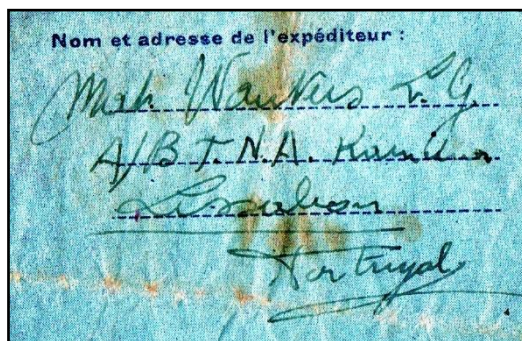 Nom et adresse de l'expéditeur :
L.G
A/B T.N.A. Kamina
Lissabon
Portugal